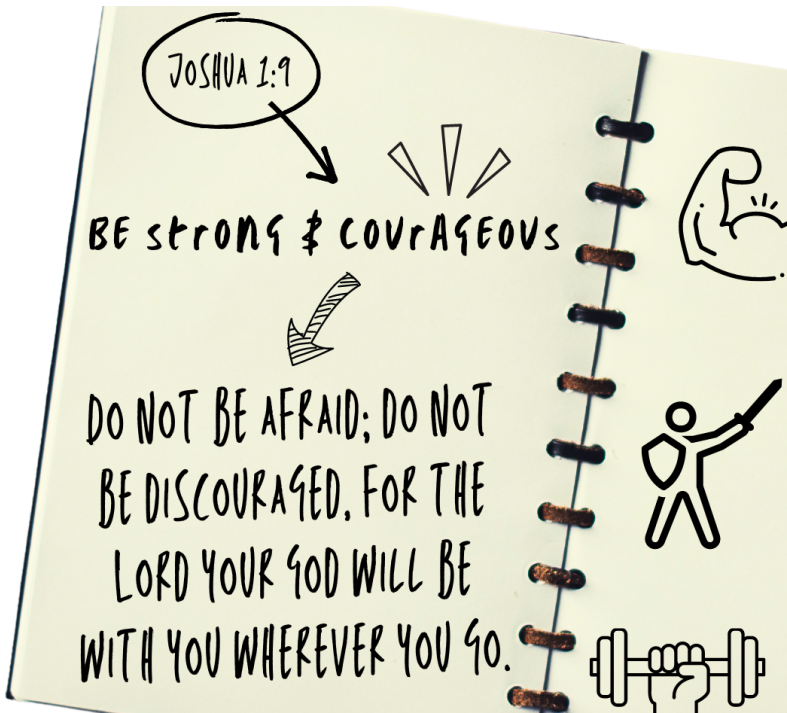 JOSHUA 1:9
BE strong & COUrAGEOUs
DO NOT BE AFRAID; DO NOT
BE DISCOURAGED, FOR THE
LORD YOUR GOD WILL BE
WITH YOU WHEREVER YOU GO.